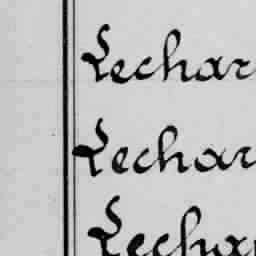 Lechar
Lechar
Lechar